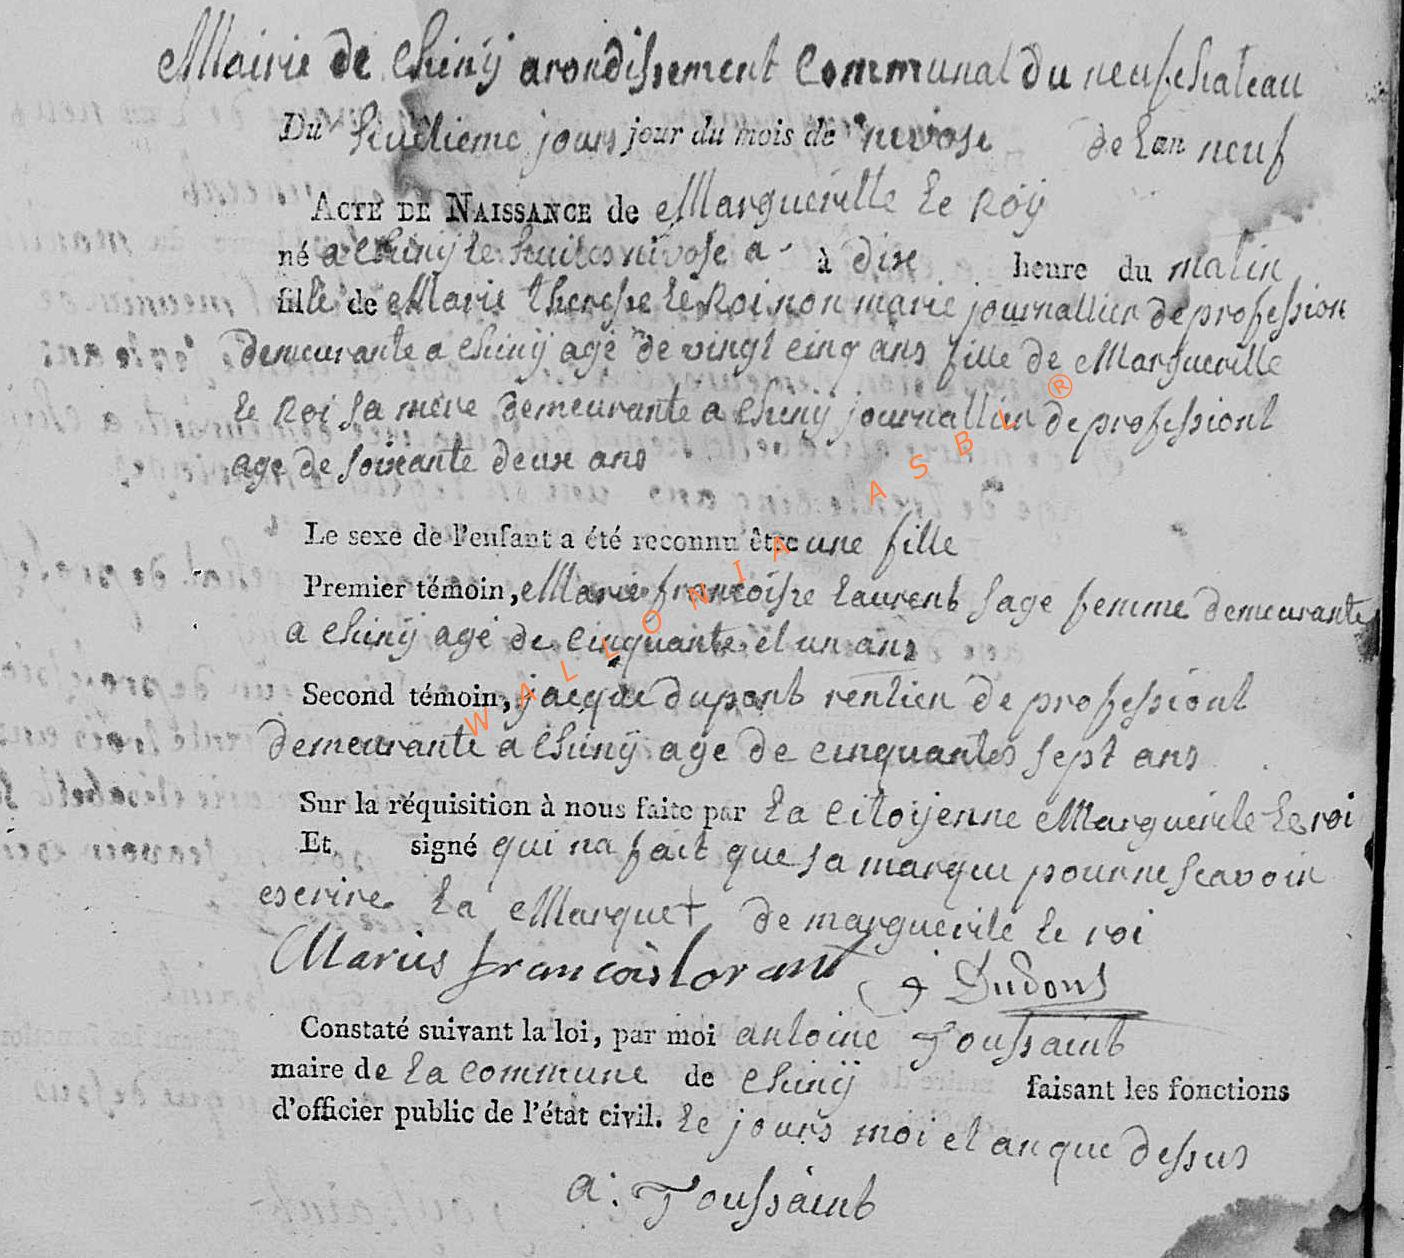 Mairie de Chinÿ arondissement Communal du neufchateau
Du huitieme jours jour du mois de nivose de Lan neuf
ACTE DE NAISSANCE de Margueritte Le Roÿ
né a Chinÿ le huites nivose a à dix heure du matin
fille de Marie theresse Le Roi non marie journallier de profession
demeurante a Chinÿ agé de vingt cinq ans fille de Margueritte
Le Roi sa mere demeurante a Chinÿ journallier de professiont
age de soixante deux ans
Le sexe de l'enfant a été reconnu être une fille
Premier témoin, Marie francoisse Laurent sage femme demeurante
a Chinÿ agé de Cinquante et un ans
Second témoin, jacque dupont rentier de professiont
demeurante a Chinÿ age de cinquantes sept ans
Sur la réquisition à nous faite par La Citoÿenne Marguerite Le roi
Et signé qui na fait que sa marque pour ne scavoir
escrire La Marque + de marguerite Le roi
Maries francois lorant J Dudons
Constaté suivant la loi, par moi antoine Toussaint
maire de La Commune de Chinÿ faisant les fonctions
d'officier public de l'état civil. Le jours moi et an que dessus
a: Toussaint
WALLONIA ASBL ®